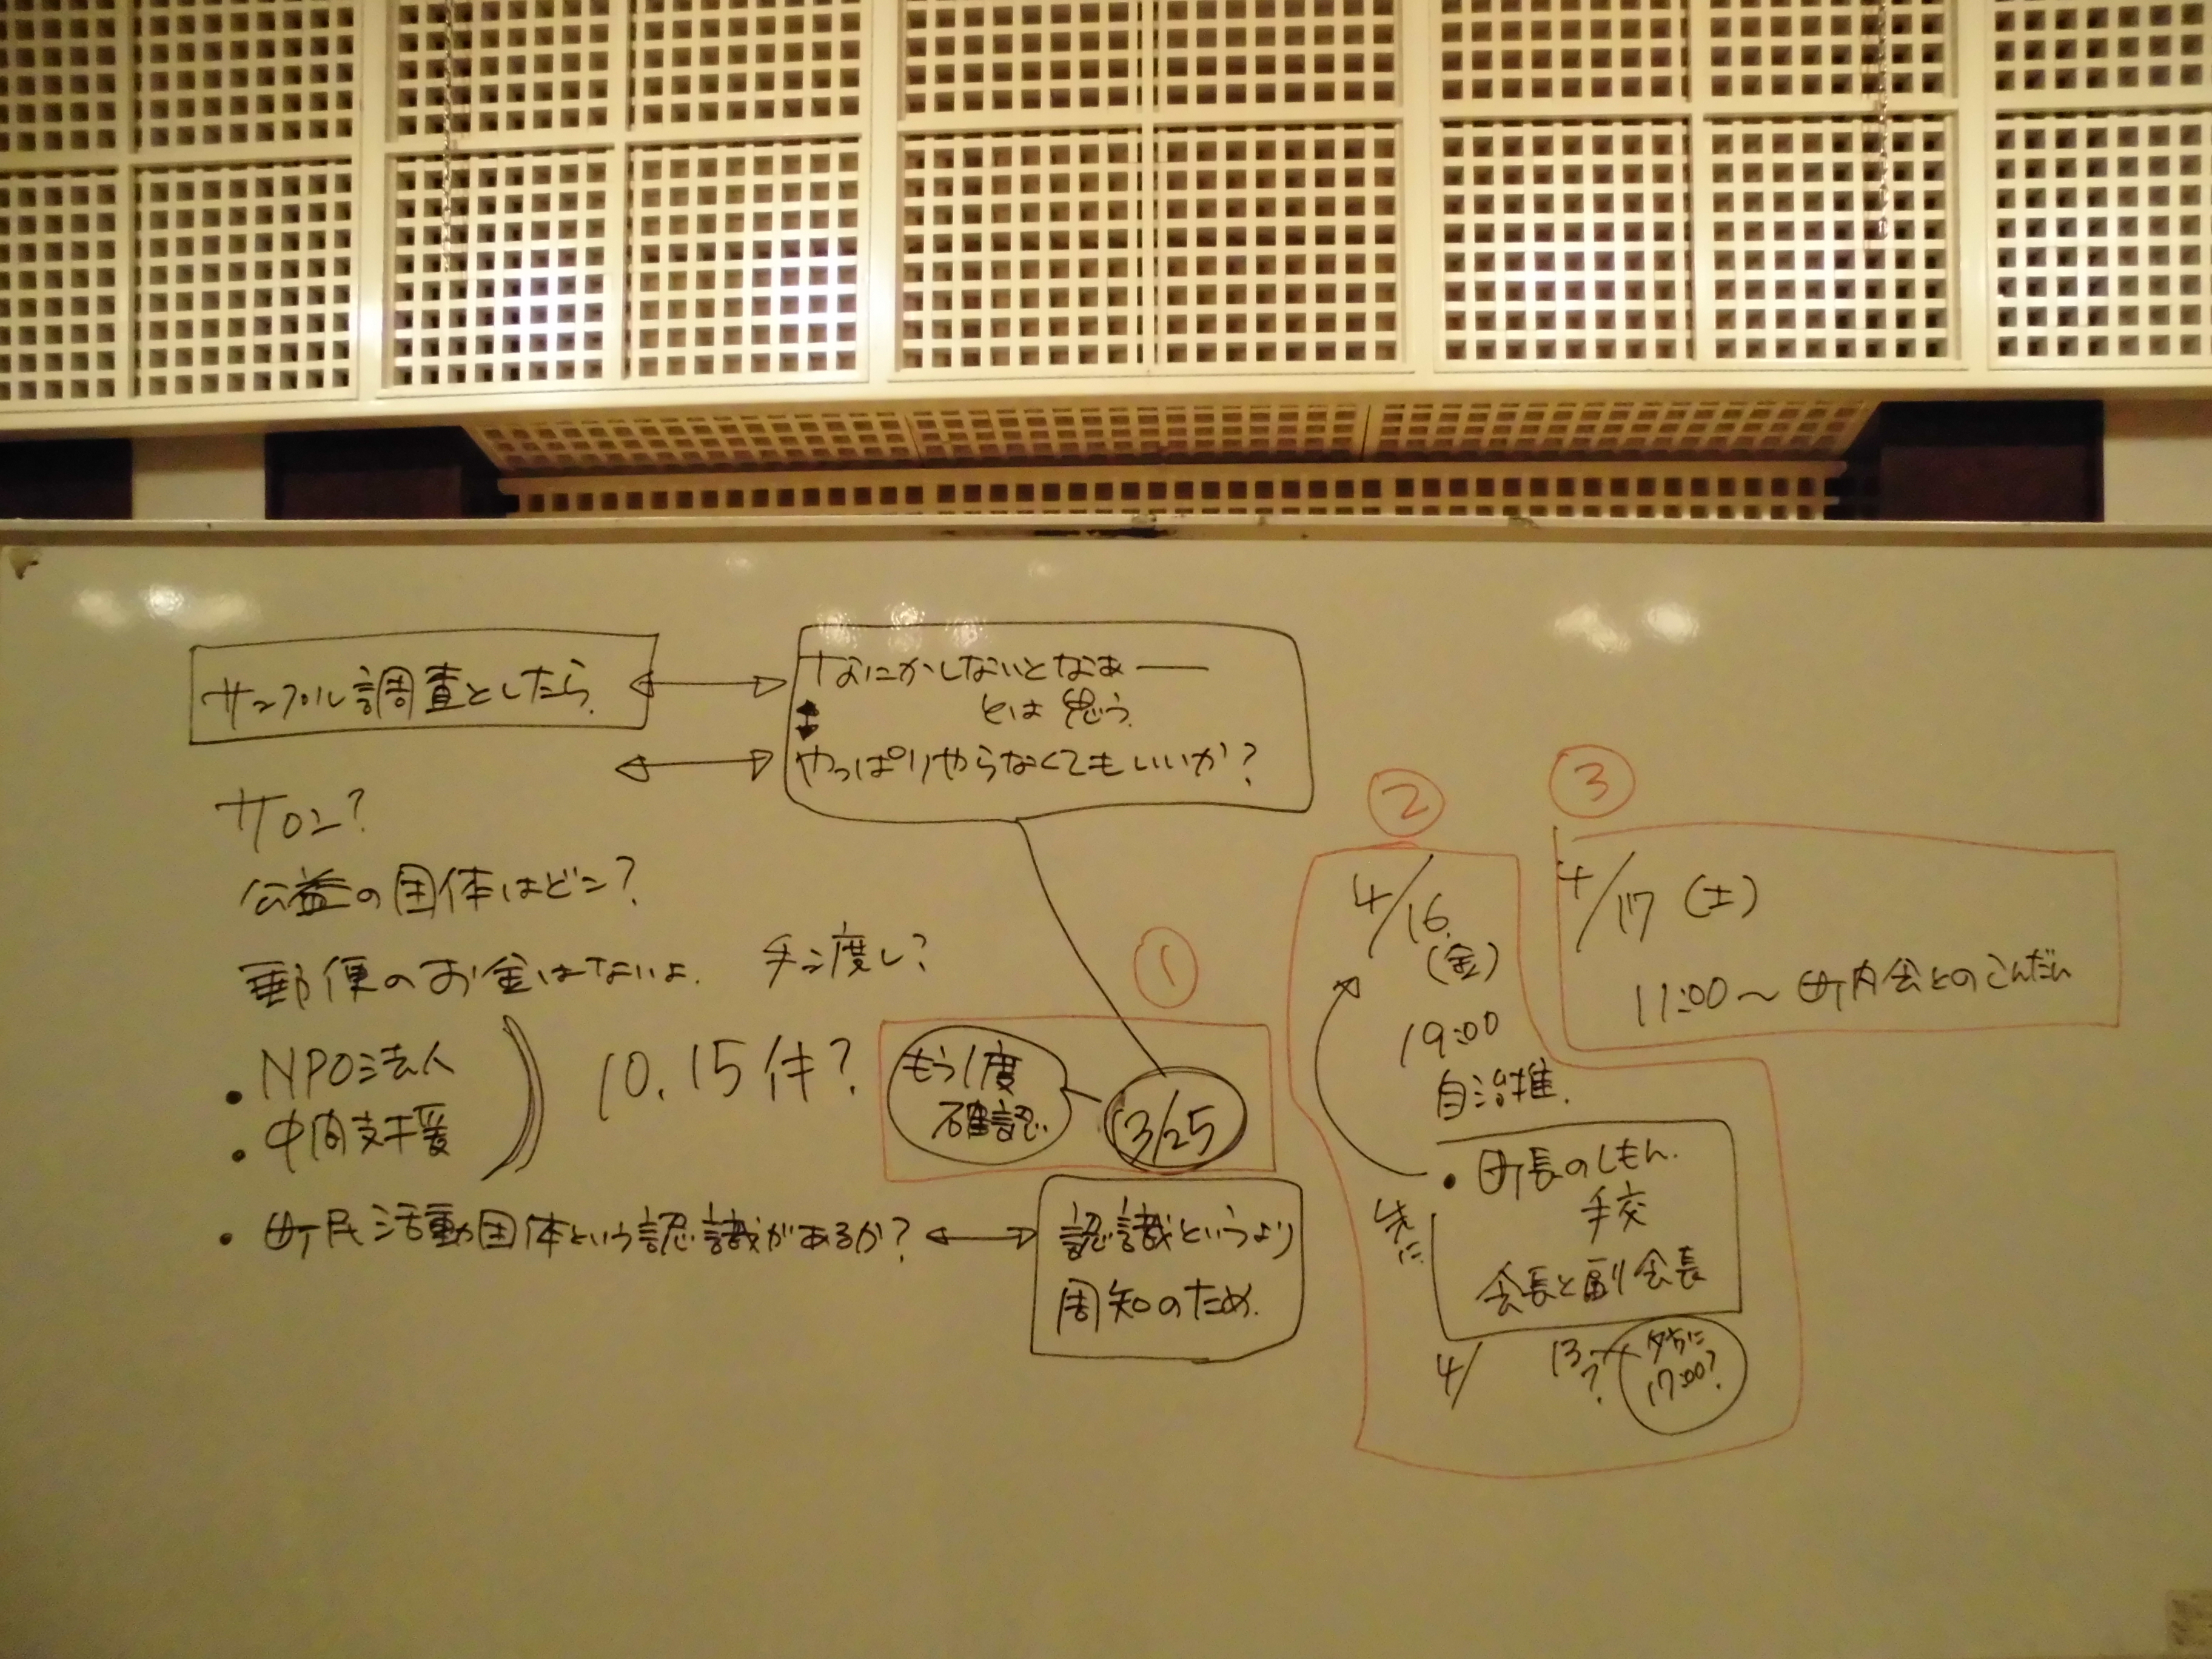 サンプル調査としたら
なにかしないとなぁー
とは思う
やっぱりやらなくてもいいか?
サロン?
公益の団体はどこ?
郵便のお金はないよ.
手渡し?
・NPO法人
・中間支援
10.15件?
①
もう1度
確認
3/25
・町民活動団体という認識があるか?
認識というより
周知のため.
②
4/16.
(金)
19:00
自治推.
・町長のしもん.
手交
会長と副会長
先に
4/
13?
夕方に
17:00?
③
4/17(土)
11:00〜町内会とのこんだん